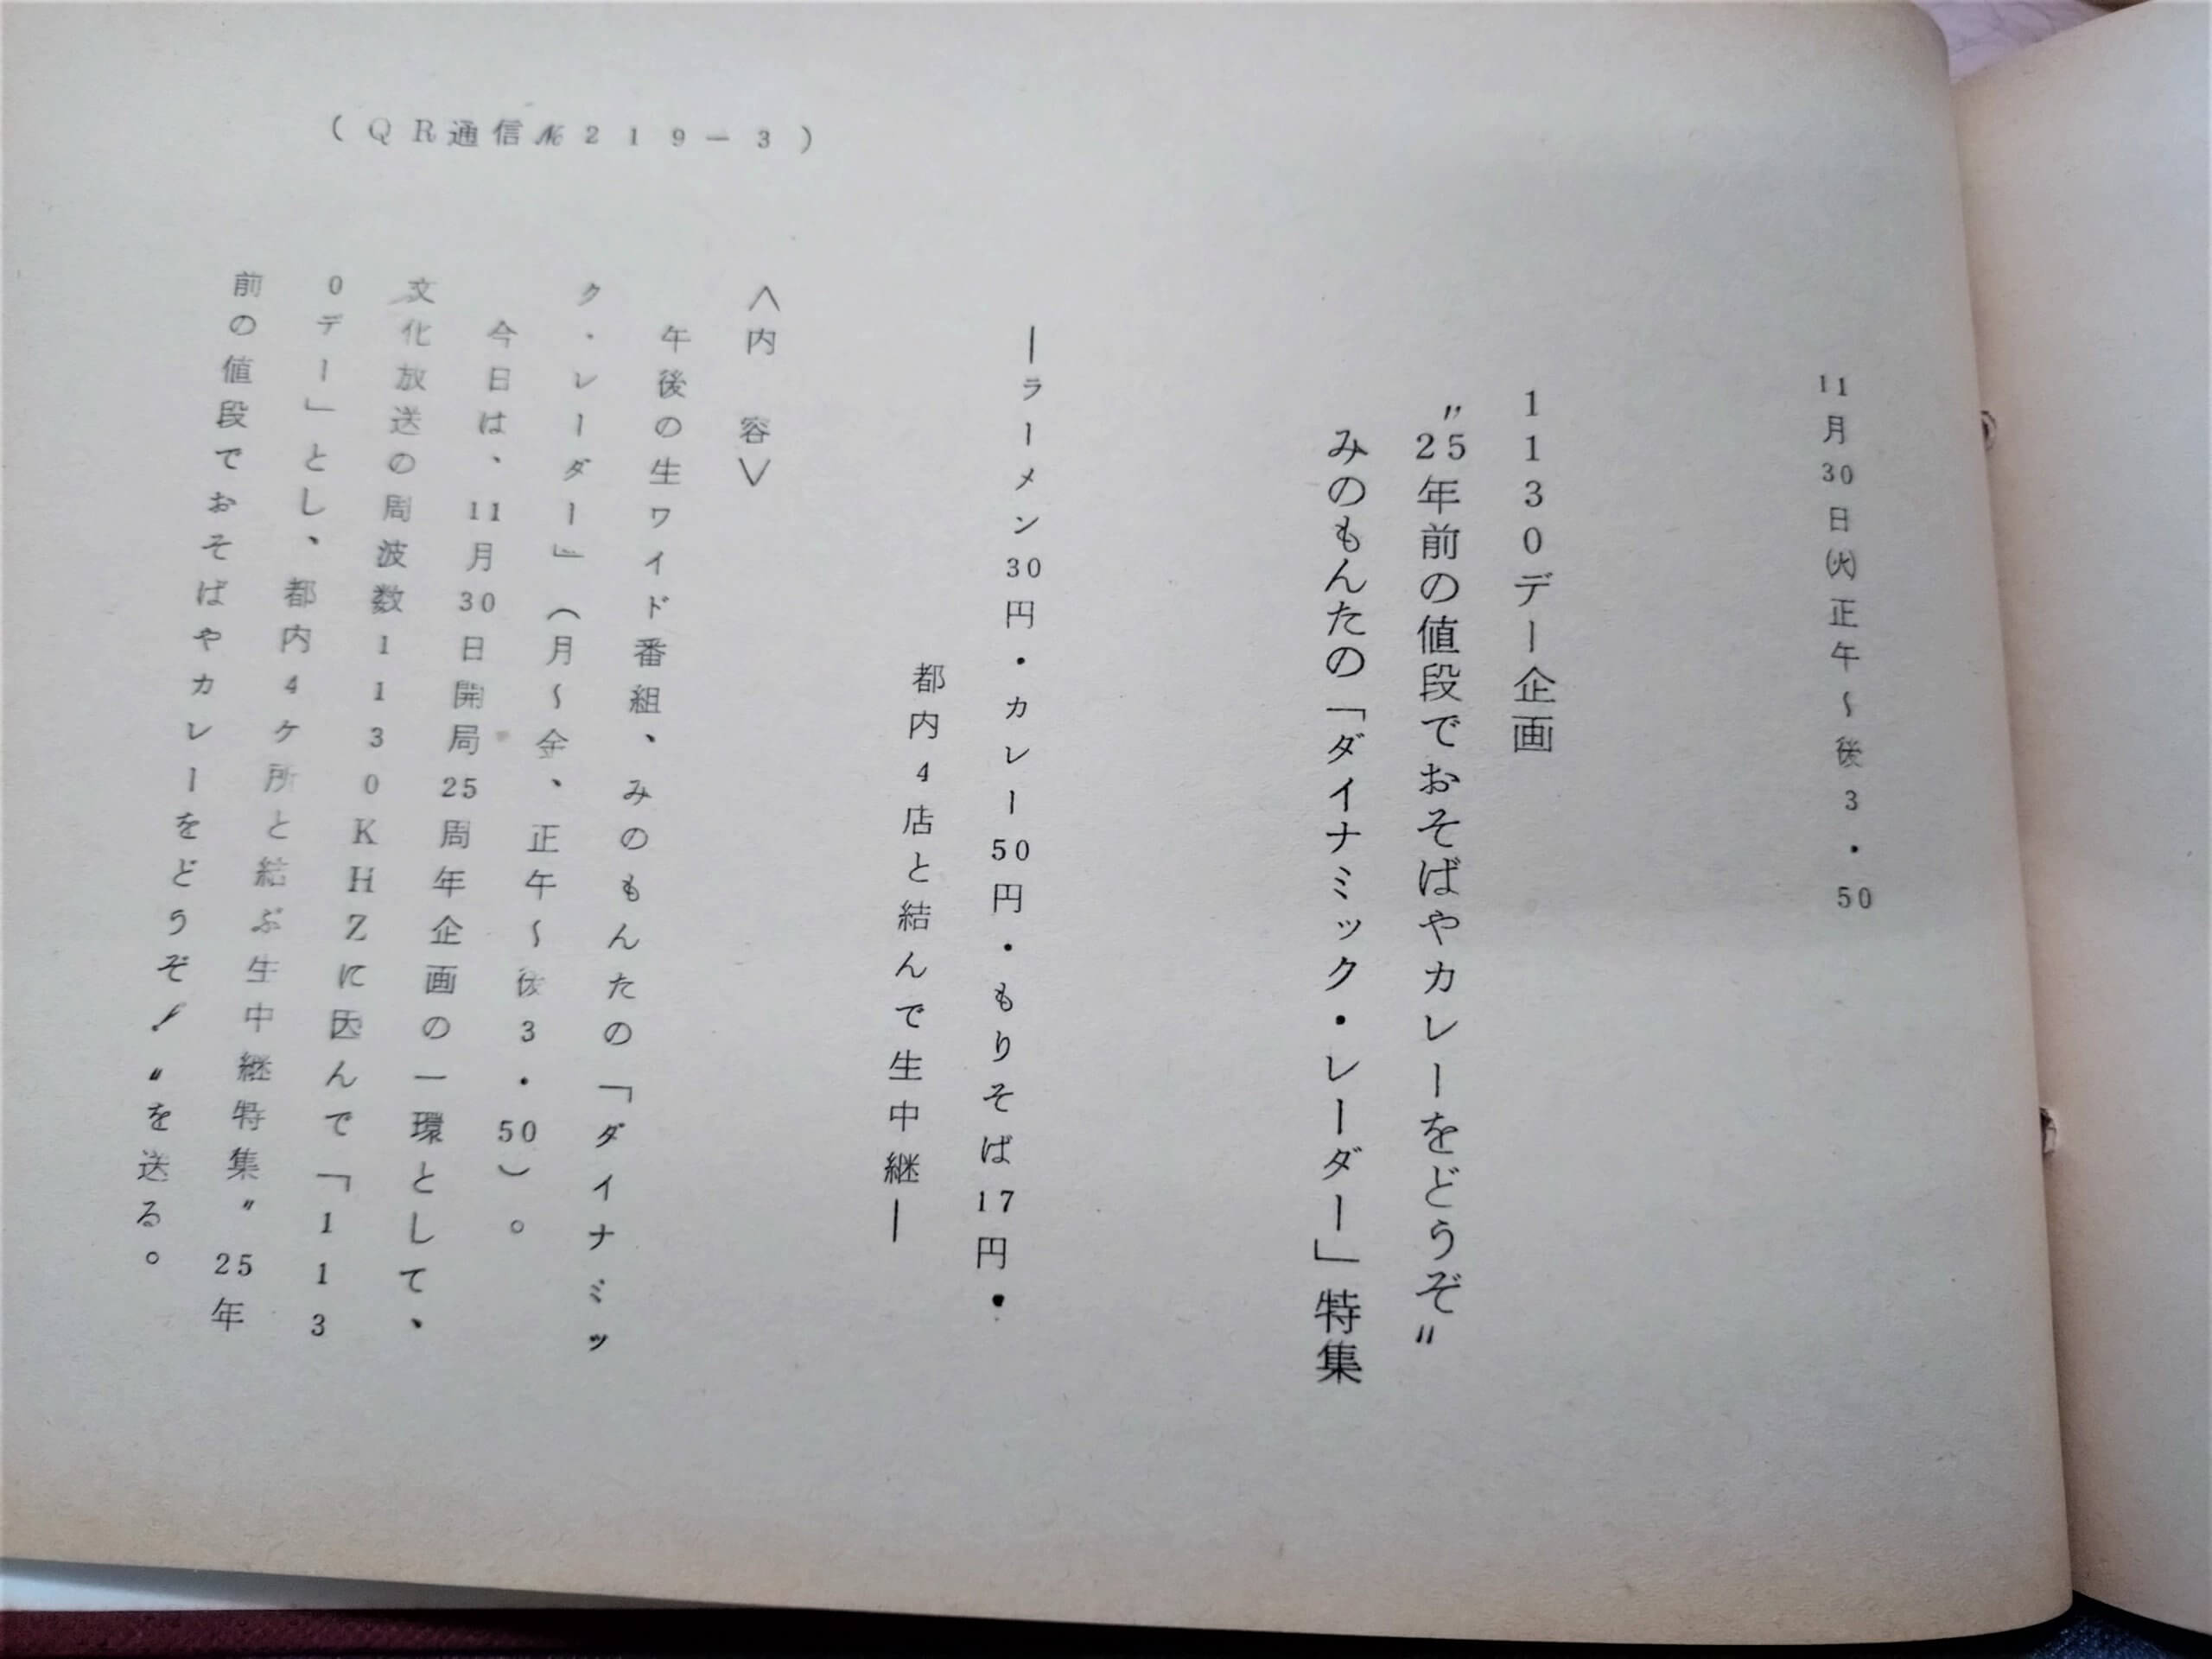 (QR通信№219－3)
11月30日㈫正午～後3・50
1130デー企画
〝25年前の値段でおそばやカレーをどうぞ〟
みのもんたの「ダイナミック・レーダー」特集
―ラーメン30円・カレー50円・もりそば17円・
都内4店と結んで生中継―
〈内　容〉
午後の生ワイド番組、みのもんたの「ダイナミッ
ク・レーダー」(月～金、正午～後3・50)。
今日は、11月30日開局25周年企画の一環として、
文化放送の周波数1130KHZに因んで「113
0デー」とし、都内4ケ所と結ぶ生中継特集〝25年
前の値段でおそばやカレーをどうぞ！〟を送る。